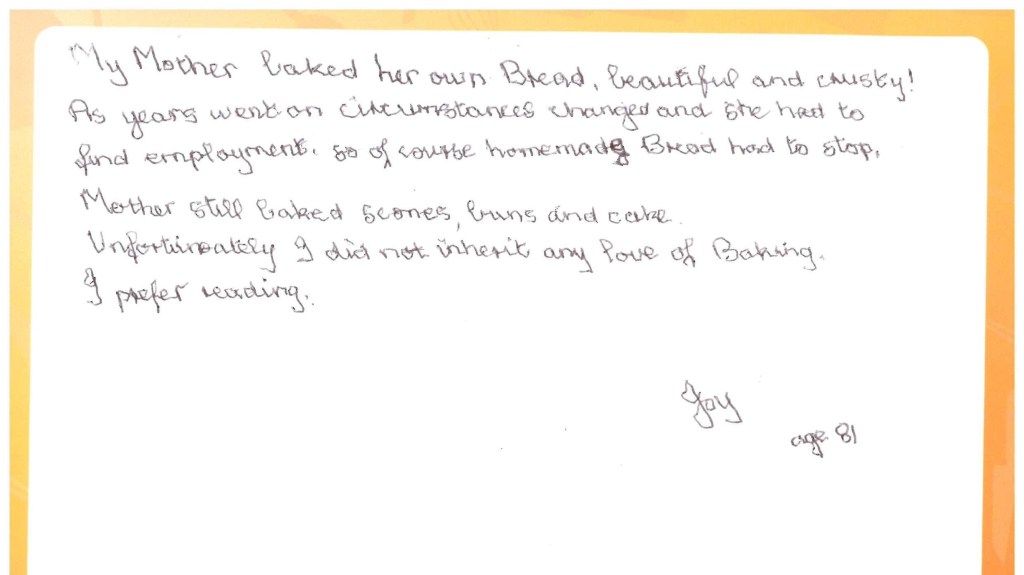 My Mother baked her own Bread, beautiful and crusty!
As years went on circumstances changed and she had to
find employment. so of course homemade Bread had to stop,
Mother still baked scones, buns and cake.
Unfortunately I did not inherit any love of Baking.
I prefer reading.
Joy
age 81